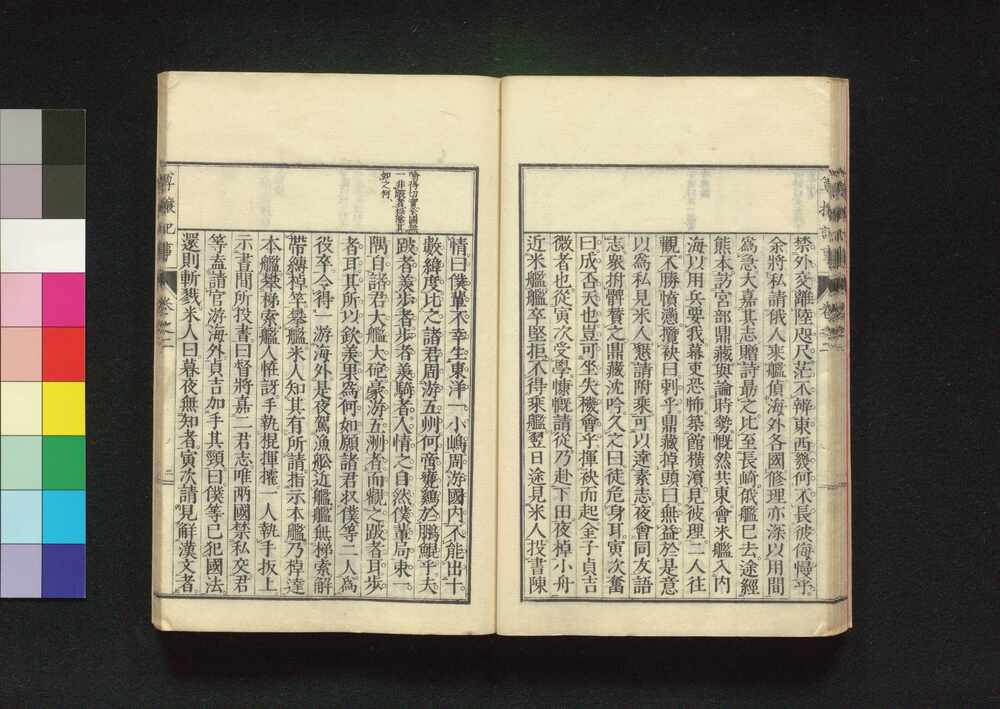 禁外交離陸咫尺茫不辨東西幾何不長彼侮慢乎
余將私請俄人乘艦偵海外各國修理亦深以用間
爲急大喜其志贈詩勗之比至長崎俄艦已去途經
熊本訪宮部鼎藏與論時勢慨然共東會米艦入内
海以用兵要我幕吏恐怖築館橫濱見彼理二人往
觀不勝憤懣攬袂曰刺乎鼎藏掉頭曰無益於是意
以爲私見米人懇請附乘可以達素志夜會同友語
志衆拊髀贊之鼎藏沈吟久之曰徒危身耳寅次奮
曰成否天也豈可坐失機會乎揮袂而起金子貞吉
微者也從寅次受學慷慨請從乃赴下田夜棹小舟
近米艦艦卒堅拒不得乘艦翌日途見米人投書陳
如之何
情曰僕輩不幸生東洋一小嶋周游國内不能出十
數緯度比之諸君周游五州何啻甕鷄於鵬鯤乎夫
跛者羨步者步者羨騎者人情之自然僕輩局束一
隅自諸君大艦大砲豪游五洲者而觀之跛者耳步
者耳其所以欽羨果爲何如願諸君収僕等二人爲
役卒令得一游海外是夜駕漁舩近艦艦無梯索解
帶縛棹竿攀艦米人知其有所請指示本艦乃棹達
本艦攀梯索艦人怪訝手執棍揮攉一人執手扳上
示晝間所投書曰督將嘉二君志唯兩國禁私交君
等盍請官游海外貞吉加手其頸曰僕等已犯國法
還則斬戮米人曰暮夜無知者寅次請見解漢文者
尊攘紀事 卷之二 二